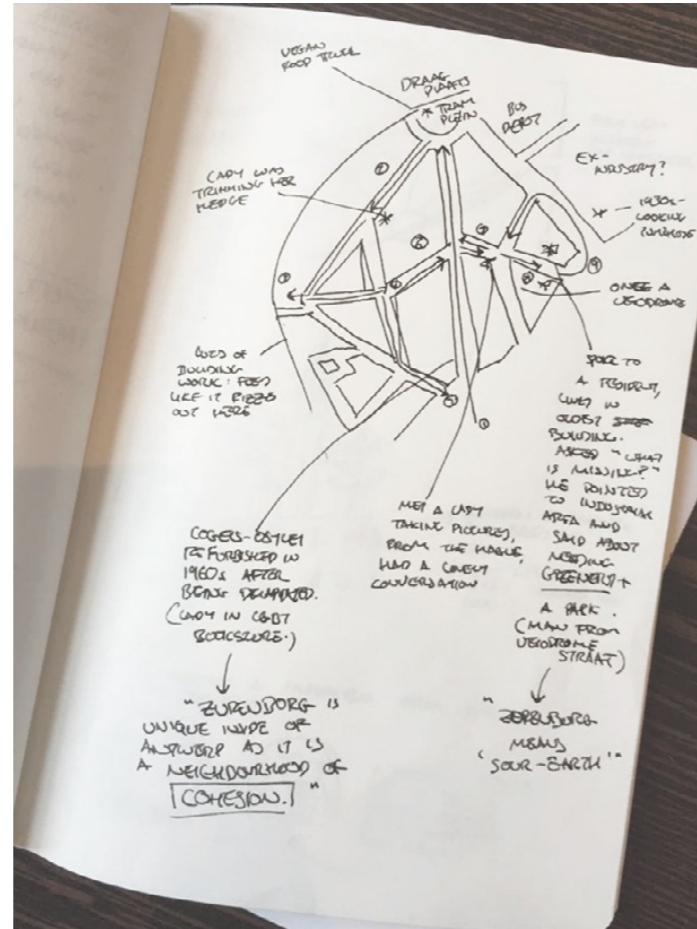 VEGAN
FOOD TRUCK
DRAAK
PLAATS
TRAM
PLEIN
BUS
DEPOT
EX-
INDUSTRY?
LADY WAS
TRIMMING HER
HEDGE
1930s-
LOOKING
ONCE A
VELODROME
LOTS OF
BUILDING
WORK: FEELS
LIKE IT
OUT HERE
SPOKE TO
A RESIDENT,
LIVES IN
OLDEST
BUILDING.
ASKED "WHAT
IS MISSING?"
HE POINTED
TO INDUSTRIAL
AREA AND
SAID ABOUT
NEEDING
GREENERY +
A PARK.
(MAN FROM
VELODROME
STRAAT)
MET A LADY
TAKING PICTURES,
FROM THE HAGUE,
HAD A LOVELY
CONVERSATION
COGELS-OSYLEI
REFURBISHED IN
1960s AFTER
BEING DILAPIDATED.
(LADY IN LGBT
BOOKSTORE.)
"ZURENBORG IS
UNIQUE INSIDE OF
ANTWERP AS IT IS
A NEIGHBOURHOOD OF
COHESION."
"ZURENBORG
MEANS
'SOUR-EARTH'"